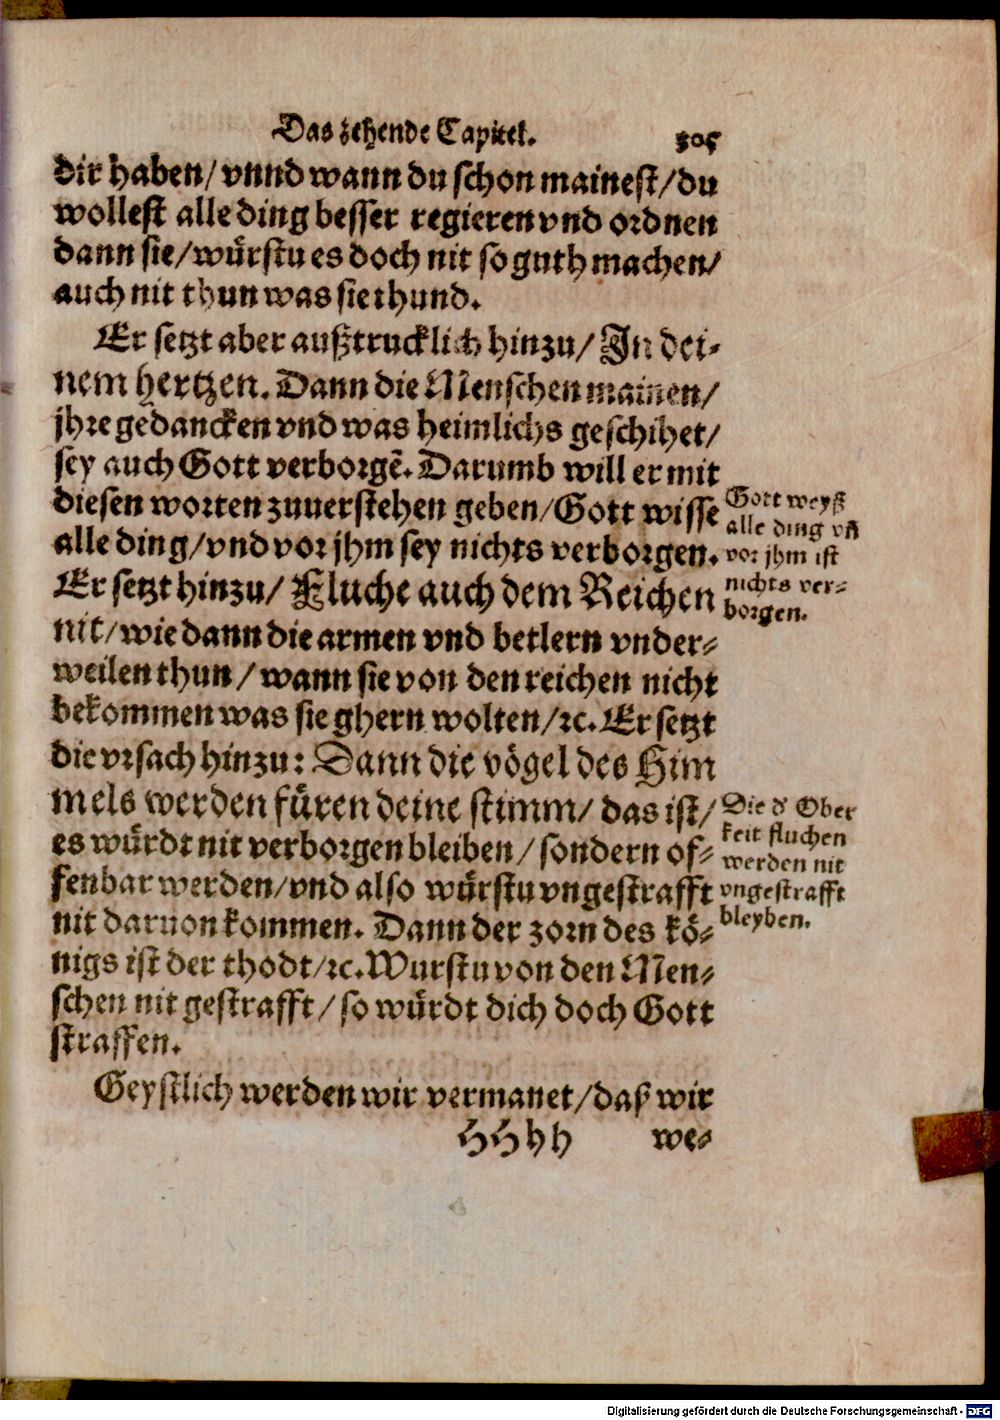 Das zehende Capitel. 305
dir haben/ vnnd wann du schon mainest/ du
wollest alle ding besser regieren vnd ordnen
dann sie/ würstu es doch nit so guth machen/
auch nit thun was sie thund.
Er setzt aber außtrucklich hinzu/ In dei-
nem hertzen. Dann die Menschen mainen/
jhre gedancken vnd was heimlichs geschihet/
sey auch Gott verborgē. Darumb will er mit
diesen worten zuuerstehen geben/ Gott wisse
alle ding/ vnd vor jhm sey nichts verborgen.
Er setzt hinzu/ Fluche auch dem Reichen
nit/ wie dann die armen vnd betlern vnder-
weilen thun/ wann sie von den reichen nicht
bekommen was sie ghern wolten/ ꝛc. Er setzt
die vrsach hinzu: Dann die vögel des Him
mels werden füren deine stimm/ das ist/
es würdt nit verborgen bleiben/ sondern of-
fenbar werden/ vnd also würstu vngestrafft
nit daruon kommen. Dann der zorn des kö-
nigs ist der thodt/ ꝛc. Wurstu von den Men-
schen nit gestrafft/ so würdt dich doch Gott
straffen.
Geystlich werden wir vermanet/ daß wir
HHhh we-
Gott weyß
alle ding vñ
vor jhm ist
nichts ver-
borgen.
Die d' Ober
keit fluchen
werden nit
vngestrafft
bleyben.
Digitalisierung gefördert durch die Deutsche Forschungsgemeinschaft - DFG